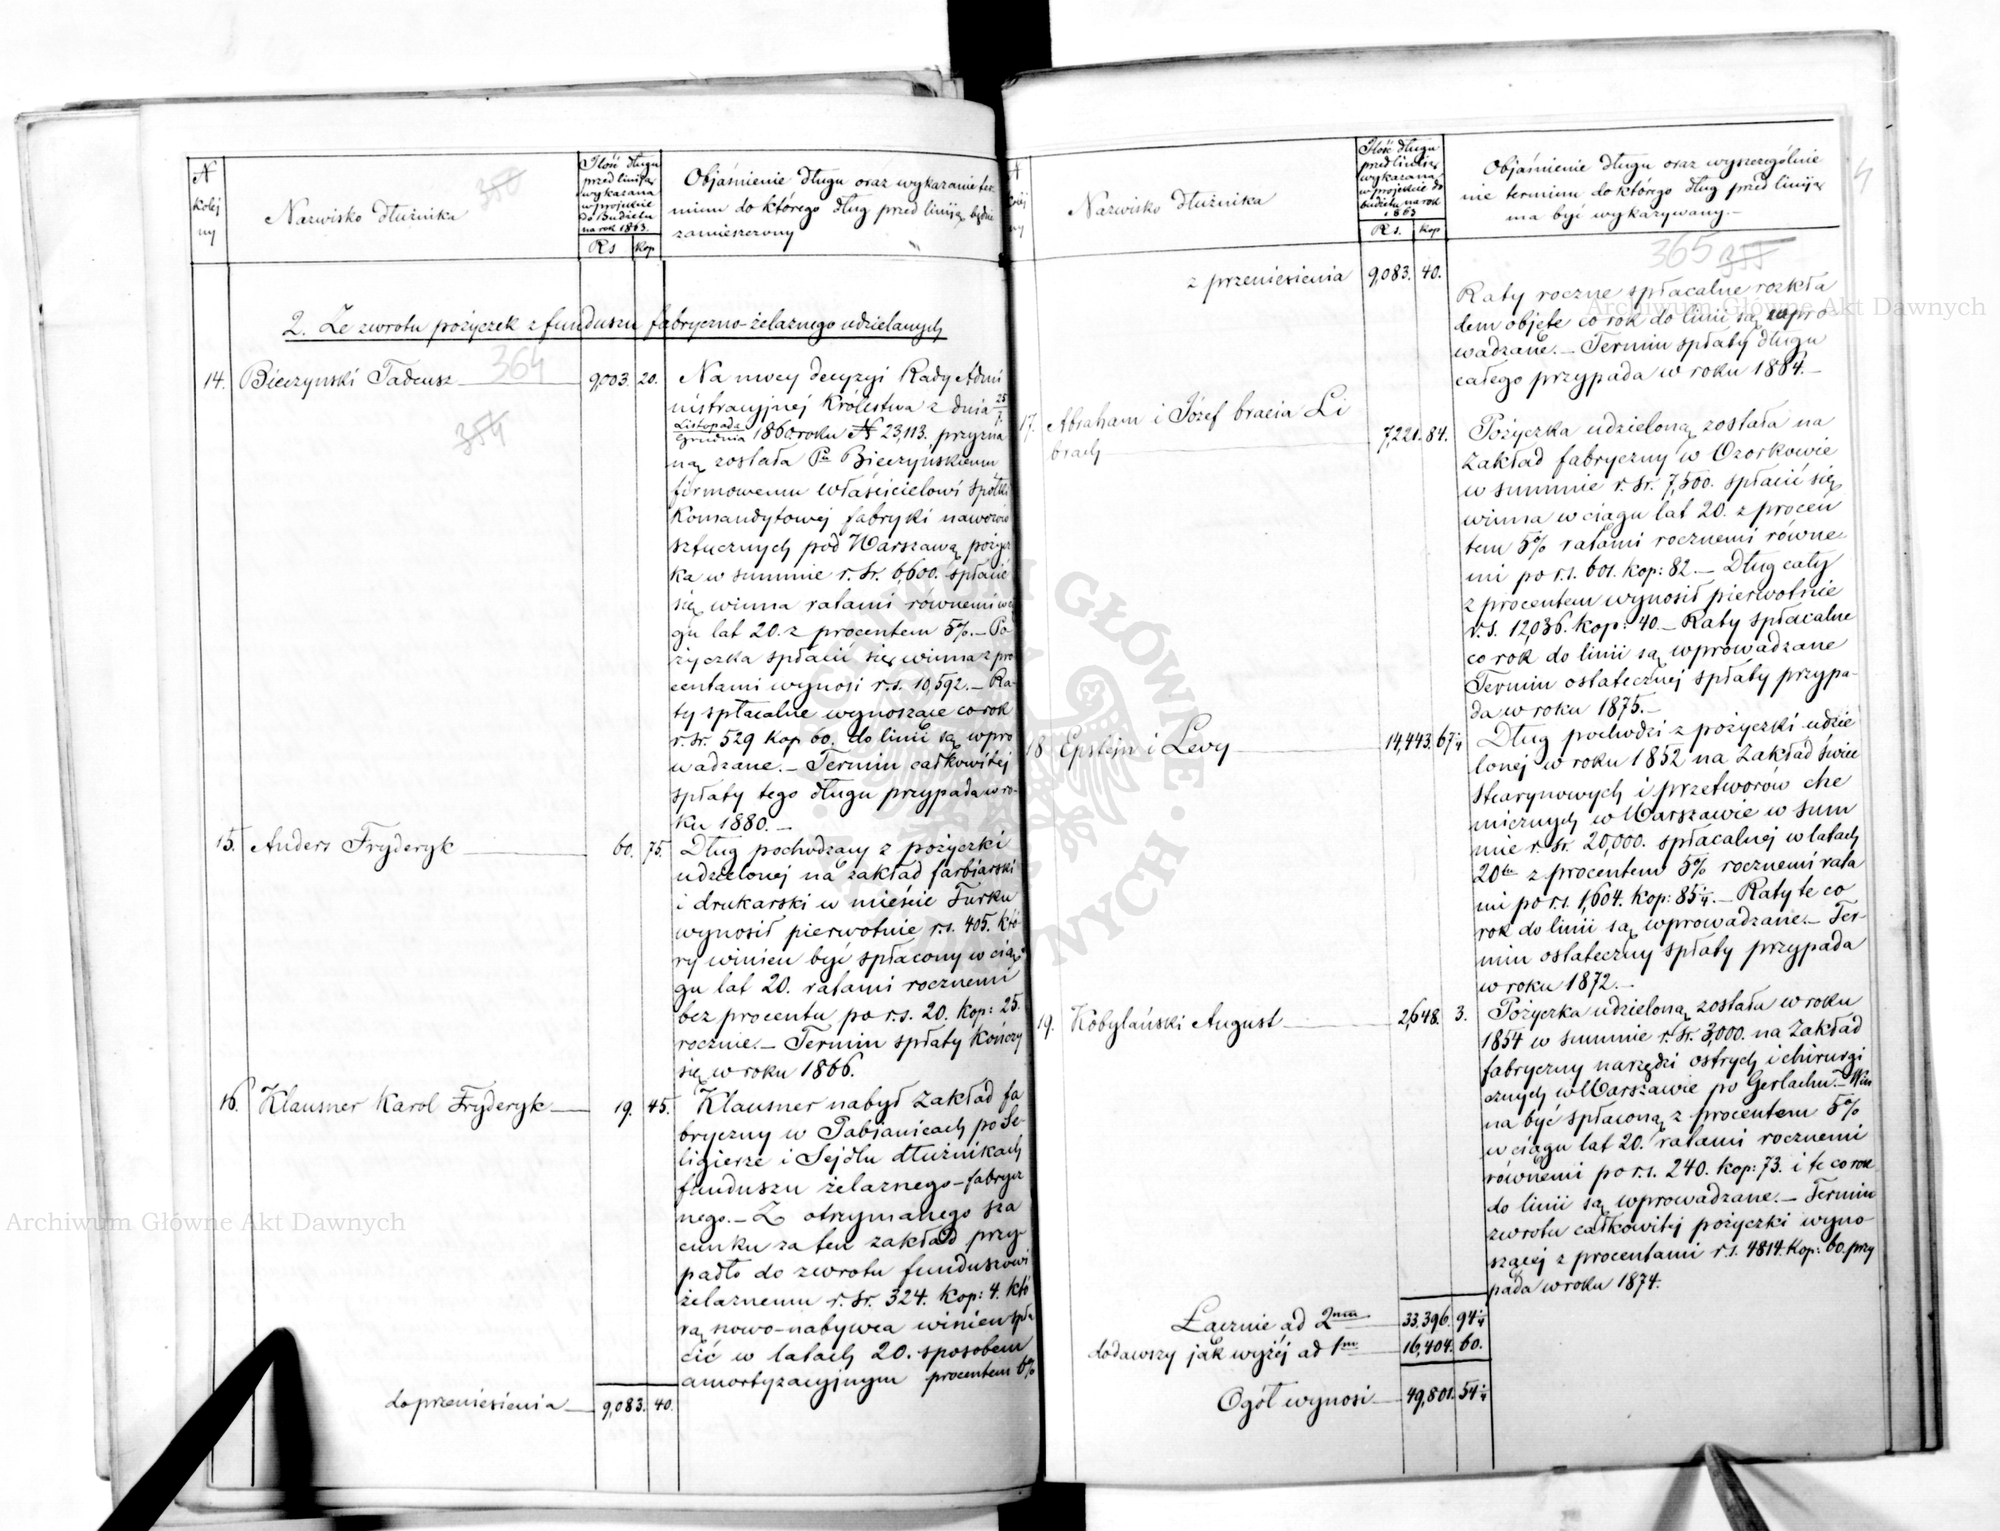 N
kolej
ny
Nazwisko dłużnika
350
Ilość długu
przed linią
wykazana
w projekcie
do Budżetu
na rok 1863.
Rs kop
Objaśnienie długu oraz wykazanie ter
minu do którego dług przed liniją będzie
zamieszczony
2. Ze zwrotu pożyczek z funduszu fabryczno-żelaznego udzielanych
364
354
14. Bieczynski Tadeusz 9,003. 20.
Na mocy decyzyi Rady Admi
nistracyjnej Królestwa z dnia 25/7
Listopada/Grudnia 1860 roku N 23,113. przyzna
ną została Pu Bieczynskiemu
firmowemu właścicielowi spółki
Komandytowej fabryki nawozów
sztucznych pod Warszawą pożycz
ka w summie r. sr. 6600. spłacić
się winna ratami równemi w cią
gu lat 20. z procentem 5%. – Po
życzka spłacić się winna z pro
centami wynosi r.s. 10,592. – Ra-
ty spłacalne wynoszące co rok
r. sr. 529 kop 60. do linii są wpro
wadzane. – Termin całkowitej
spłaty tego długu przypada w ro-
ku 1880. –
15. Anders Fryderyk 60. 75.
Dług pochodzący z pożyczki
udzielonej na zakład farbiarski
i drukarski w mieście Turku
wynosił pierwotnie r.s. 405. któ
ry winien być spłacony w cią
gu lat 20. ratami rocznemi
bez procentu po r.s. 20. kop: 25.
rocznie. – Termin spłaty kończy
się w roku 1866.
16. Klausner Karol Fryderyk 19. 45.
Klausner nabył zakład fa
bryczny w Pabianicach po Se-
ligierze i Sejdlu dłużnikach
funduszu żelaznego-fabrycz
nego. – Z otrzymanego sza
cunku za ten zakład przy-
padło do zwrotu funduszowi
żelaznemu r. sr. 324. kop: 4. któ
rą nowo-nabywca winien spła
cić w latach 20. sposobem
amortyzacyjnym procentem 6%
do przeniesienia 9,083. 40.
N
kolej
ny
Nazwisko dłużnika
Ilość długu
przed liniią
wykazana
w projekcie do
budżetu na rok
1863
Rs. kop
Objaśnienie długu oraz wyszczególnie
nie terminu do którego dług przed liniją
ma być wykazywany. –
365 355
z przeniesienia 9,083. 40.
Raty roczne spłacalne rozkła
dem objęte co rok do linii są wpro
wadzane. – Termin spłaty długu
całego przypada w roku 1884. –
17. Abraham i Józef bracia Li
brach 7,221. 84.
Pożyczka udzieloną została na
zakład fabryczny w Ozorkowie
w summie r. sr. 7,500. spłacić się
winna w ciągu lat 20. z procen
tem 5% ratami rocznemi równe
mi po r.s. 601. kop: 82. – Dług cały
z procentem wynosił pierwotnie
r.s. 12,036. kop: 40 – Raty spłacalne
co rok do linii są wprowadzane
Termin ostatecznej spłaty przypa-
da w roku 1875. –
18 Epstejn i Levy 14,443. 67 1/4
Dług pochodzi z pożyczki udzie
lonej w roku 1852 na zakład świec
stearynowych i przetworów che
micznych w Warszawie w sum
mie r. sr. 20,000. spłacalnej w latach
20tu z procentem 5% rocznemi rata
mi po r.s. 1,604. kop: 85 1/4. – Raty te co
rok do linii są wprowadzane. – Ter-
min ostateczny spłaty przypada
w roku 1872. –
19. Kobylański August 2,648. 3.
Pożyczka udzieloną została w roku
1854 w summie r. sr. 3,000. na zakład
fabryczny narzędzi ostrych i chirurgi
cznych w Warszawie po Gerlachu. – Win
na być spłaconą z procentem 5%
w ciągu lat 20. ratami rocznemi
równemi po r.s. 240. kop: 73. i te co rok
do linii są wprowadzane. – Termin
zwrotu całkowitej pożyczki wyno
szącej z procentami r.s. 4814. kop: 60. przy
pada w roku 1874.
Łącznie ad 2um 33,396. 94 1/4
dodawszy jak wyżej ad 1m 16,404. 60.
Ogół wynosi 49,801. 54 1/4
Archiwum Główne Akt Dawnych
Archiwum Główne Akt Dawnych
ARCHIWUM GŁÓWNE · AKT DAWNYCH ·